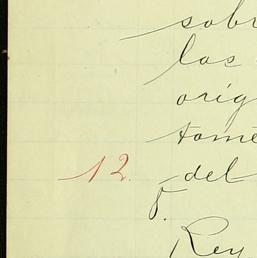 sobr
las
orig
tome
12. del
F.
Rey